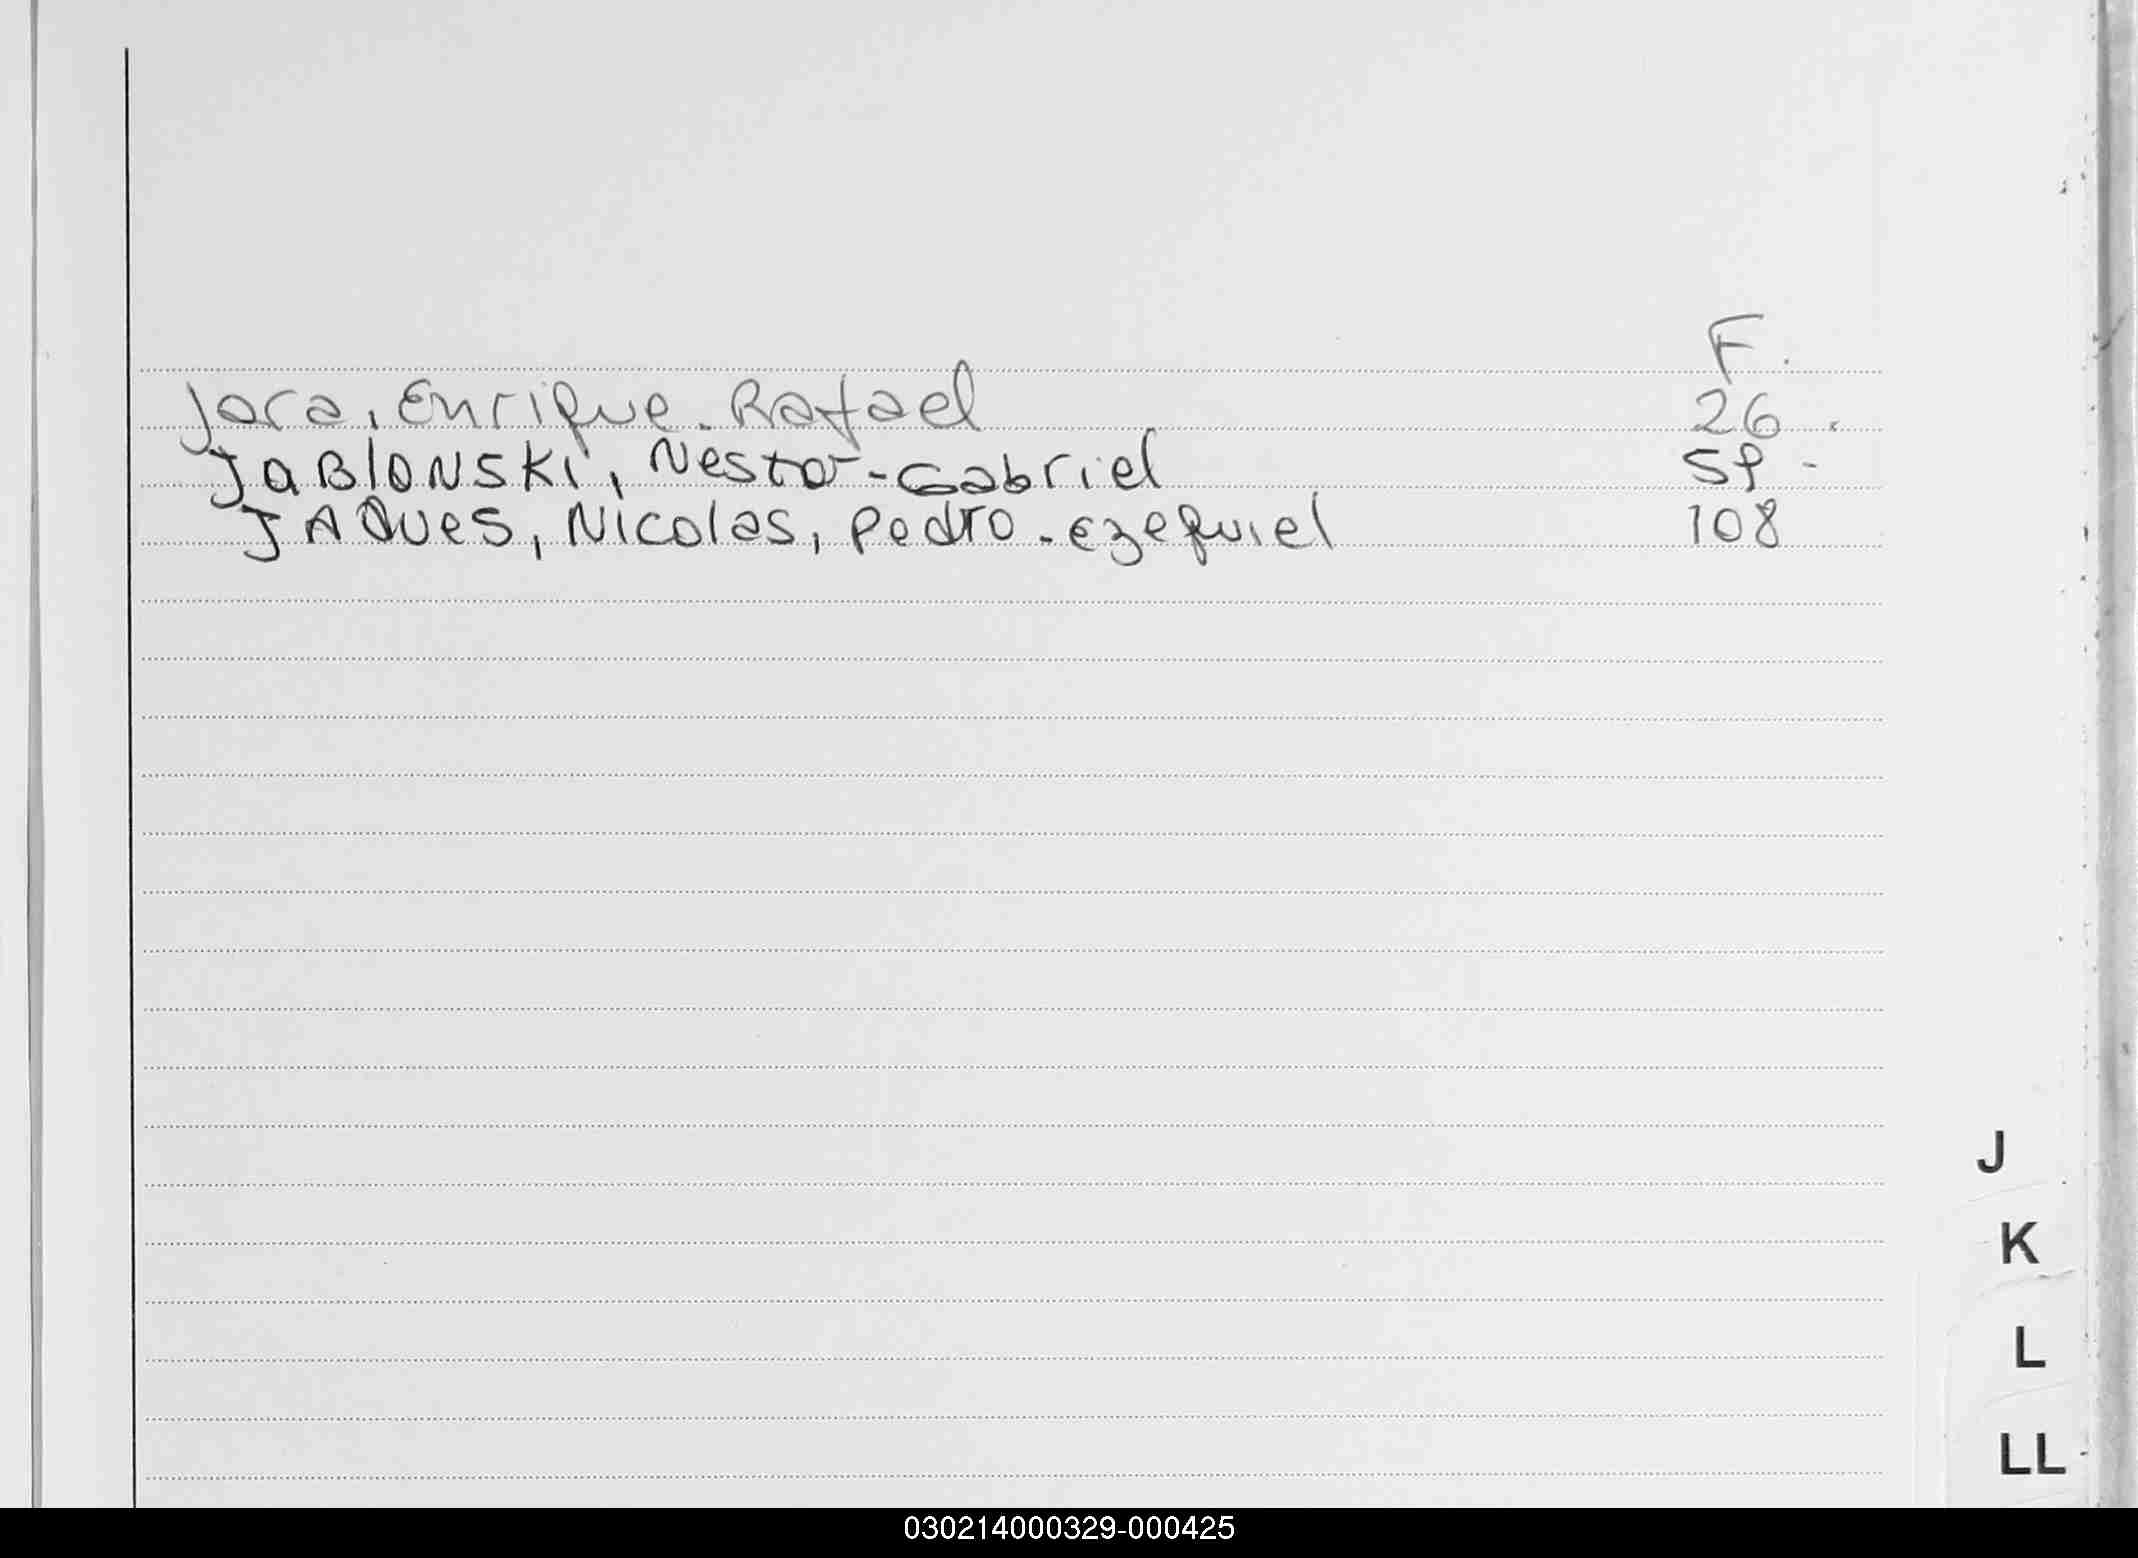 F.
Jara, Enrique. Rafael 26.
JaBlONSKi, Nestor-Gabriel 59-
JAQues, Nicolas, Pedro-Ezequiel 108
J
K
L
LL
030214000329-000425